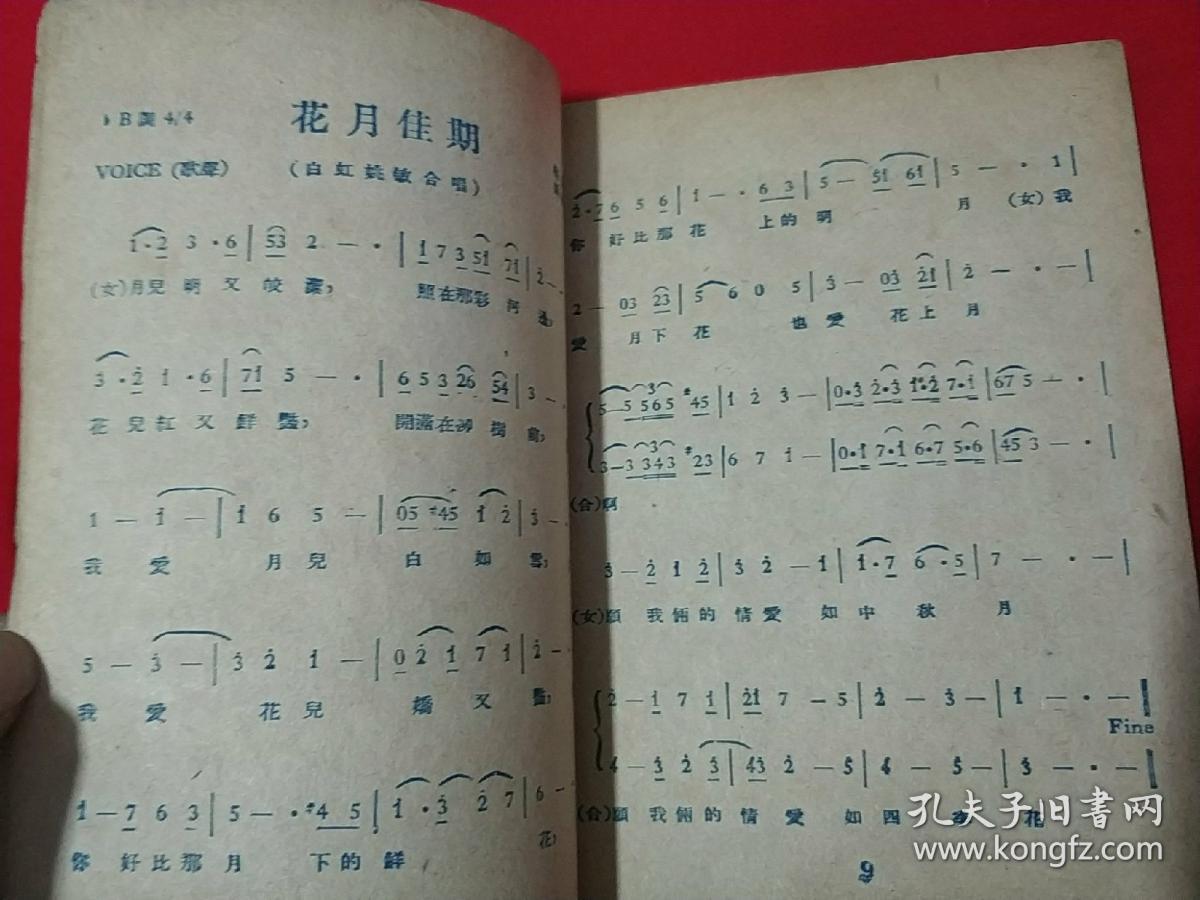 花月佳期
B調 4/4
VOICE (歌聲) (白虹姚敏合唱)
1·2 3·6 | 53 2 — · | 1 7 3 51 71 | 2 —
(女)月兒明又皎潔, 照在那彩河邊,
3·2 1·6 | 71 5 — · | 6 5 3 26 54 | 3 —
花兒紅又鮮豔, 開滿在樹前,
1 — 1 — | 1 6 5 — | 05 #45 1 2 | 3 —
我愛 月兒 白如雪,
5 — 3 — | 3 2 1 — | 0 2 1 7 1 | 2 —
我愛 花兒 嬌又豔,
1 — 7 6 3 | 5 — · #4 5 | 1·3 2 7 | 6 —
你好比那月 下的鮮 花,
2·7 6 5 6 | 1 — · 6 3 | 5 — 51 61 | 5 — · 1 |
你好比那花 上的明 月 (女)我
2 — 03 23 | 5 6 0 5 | 3 — 03 21 | 2 — · — |
愛 月下花 也愛 花上月
5—5 565 #45 | 1 2 3 — | 0·3 2·3 1·2 7·1 | 67 5 — · |
3—3 343 #23 | 6 7 1 — | 0·1 7·1 6·7 5·6 | 45 3 — · |
(合)啊
3 — 2 1 2 | 3 2 — 1 | 1·7 6·5 | 7 — · — |
(女)願我倆的情愛如中秋月
2 — 1 7 1 | 21 7 — 5 | 2 — 3 — | 1 — · — |
Fine
4 — 3 2 3 | 43 2 — 5 | 4 — 5 — | 3 — · — |
(合)願我倆的情愛如四季花
9
孔夫子旧书网
www.kongfz.com